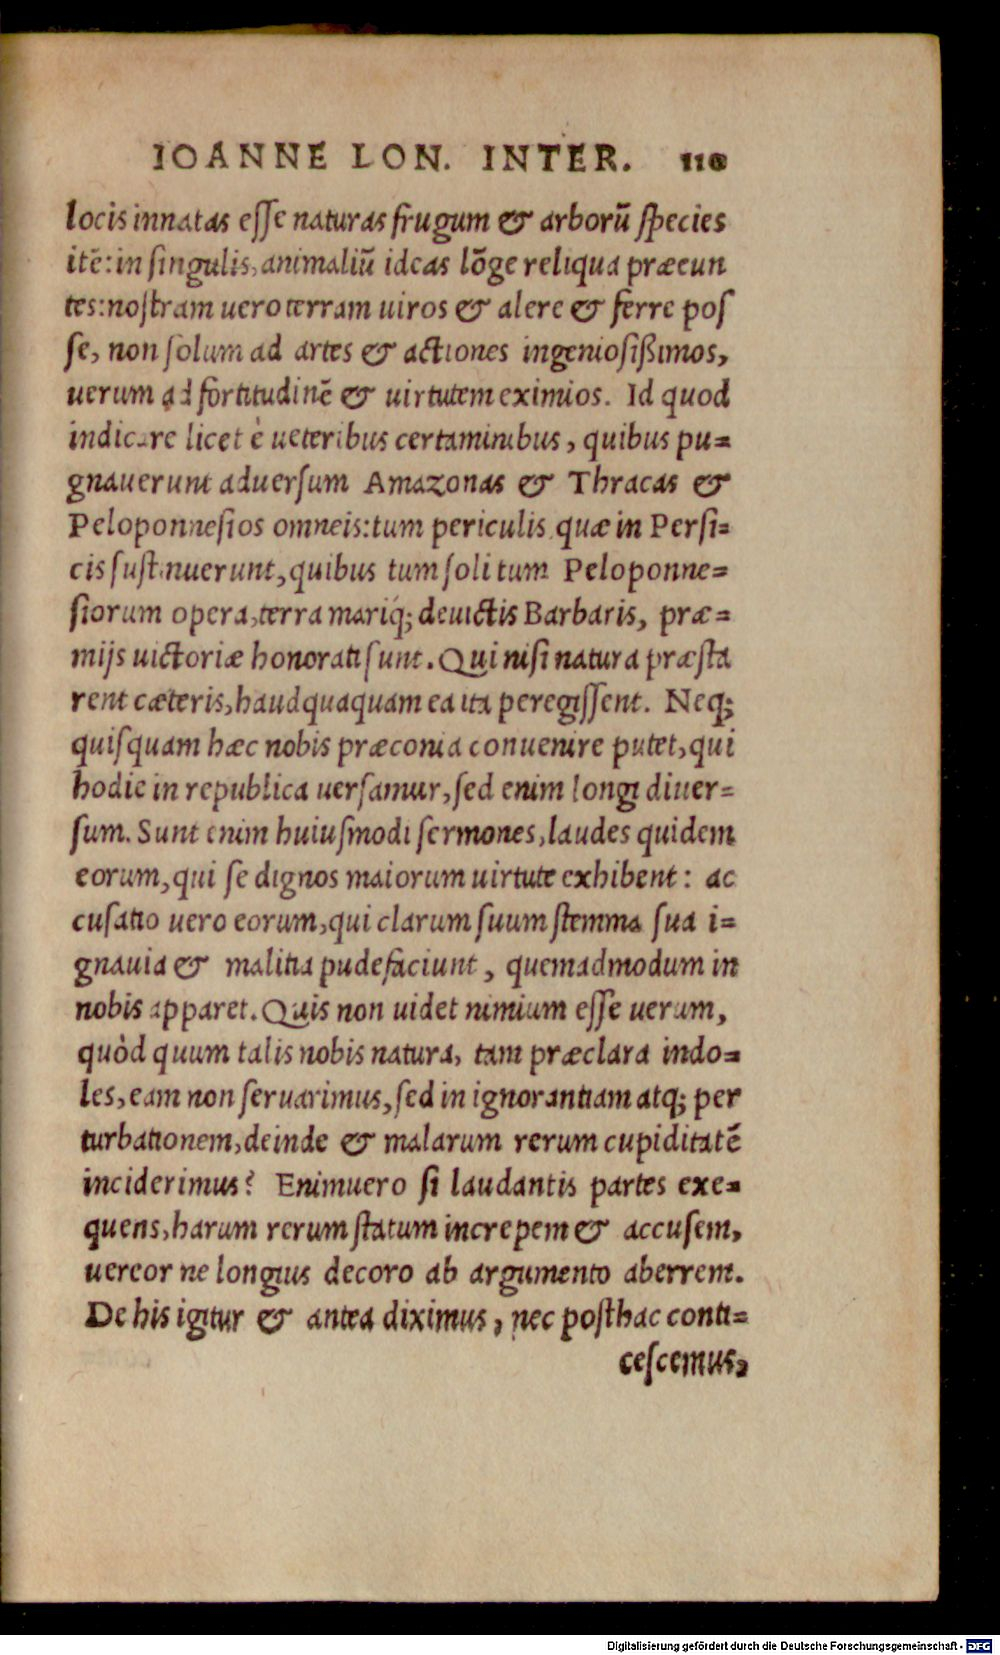 IOANNE LON. INTER. 110
locis innatas esse naturas frugum & arborū species
itē: in singulis, animaliū ideas lōge reliqua præeun
tes: nostram uero terram uiros & alere & ferre pos
se, non solum ad artes & actiones ingeniosißimos,
uerum ad fortitudinē & uirtutem eximios. Id quod
indicare licet è ueteribus certaminibus, quibus pu=
gnauerunt aduersum Amazonas & Thracas &
Peloponnesios omneis: tum periculis quæ in Persi=
cis sustinuerunt, quibus tum soli tum Peloponne=
siorum opera, terra mariq́; deuictis Barbaris, præ=
mijs uictoriæ honorati sunt. Qui nisi natura præsta
rent cæteris, haudquaquam ea ita peregissent. Neq;
quisquam hæc nobis præconia conuenire putet, qui
hodie in republica uersamur, sed enim longi diuer=
sum. Sunt enim huiusmodi sermones, laudes quidem
eorum, qui se dignos maiorum uirtute exhibent: ac
cusatio uero eorum, qui clarum suum stemma sua i=
gnauia & malitia pudefaciunt, quemadmodum in
nobis apparet. Quis non uidet nimium esse uerum,
quòd quum talis nobis natura, tam præclara indo=
les, eam non seruarimus, sed in ignorantiam atq; per
turbationem, deinde & malarum rerum cupiditatē
inciderimus? Enimuero si laudantis partes exe=
quens, harum rerum statum increpem & accusem,
uereor ne longius decoro ab argumento aberrem.
De his igitur & antea diximus, nec posthac conti=
cescemus,
Digitalisierung gefördert durch die Deutsche Forschungsgemeinschaft - DFG